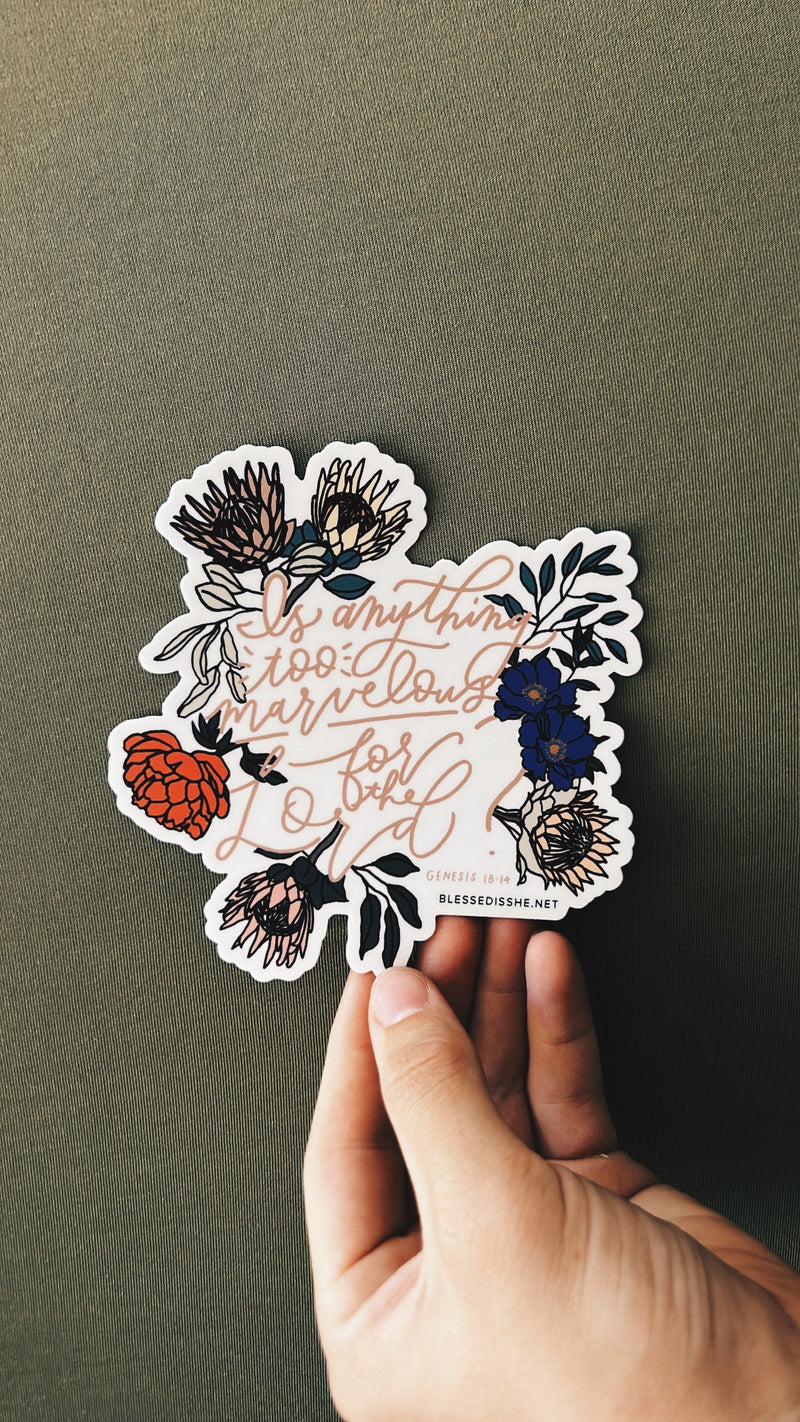 Is anything
too
marvelous
for
the
Lord?
GENESIS 18:14
BLESSEDISSHE.NET